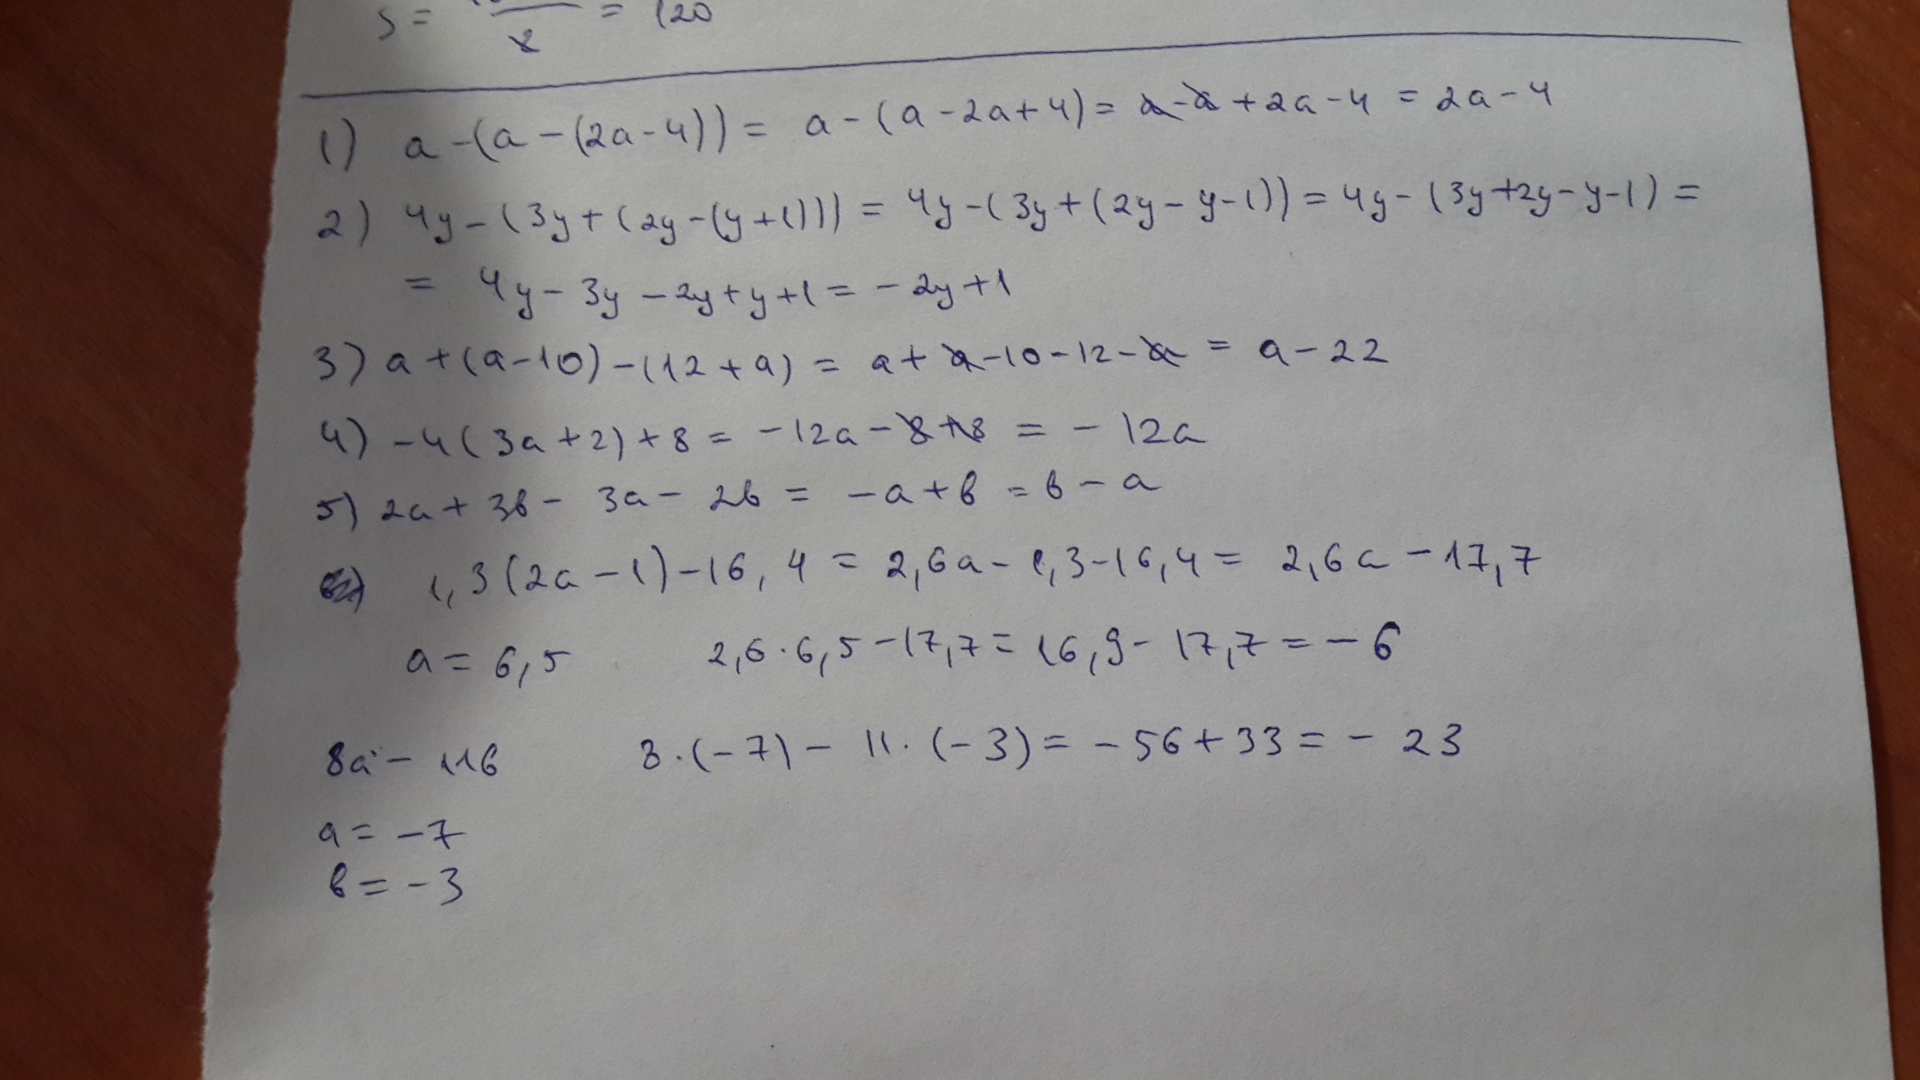 S = ― = 120
2
1) a-(a-(2a-4)) = a-(a-2a+4) = a-a+2a-4 = 2a-4
2) 4y-(3y+(2y-(y+1))) = 4y-(3y+(2y-y-1)) = 4y-(3y+2y-y-1) =
= 4y-3y-2y+y+1 = -2y+1
3) a+(a-10)-(12+a) = a+a-10-12-a = a-22
4) -4(3a+2)+8 = -12a-8+8 = -12a
5) 2a+3в-3a-2в = -a+в = в-a
1,3(2a-1)-16,4 = 2,6a-1,3-16,4 = 2,6a-17,7
a = 6,5 2,6·6,5-17,7 = 16,9-17,7 = -6
8a-11в 8·(-7)-11·(-3) = -56+33 = -23
a = -7
в = -3